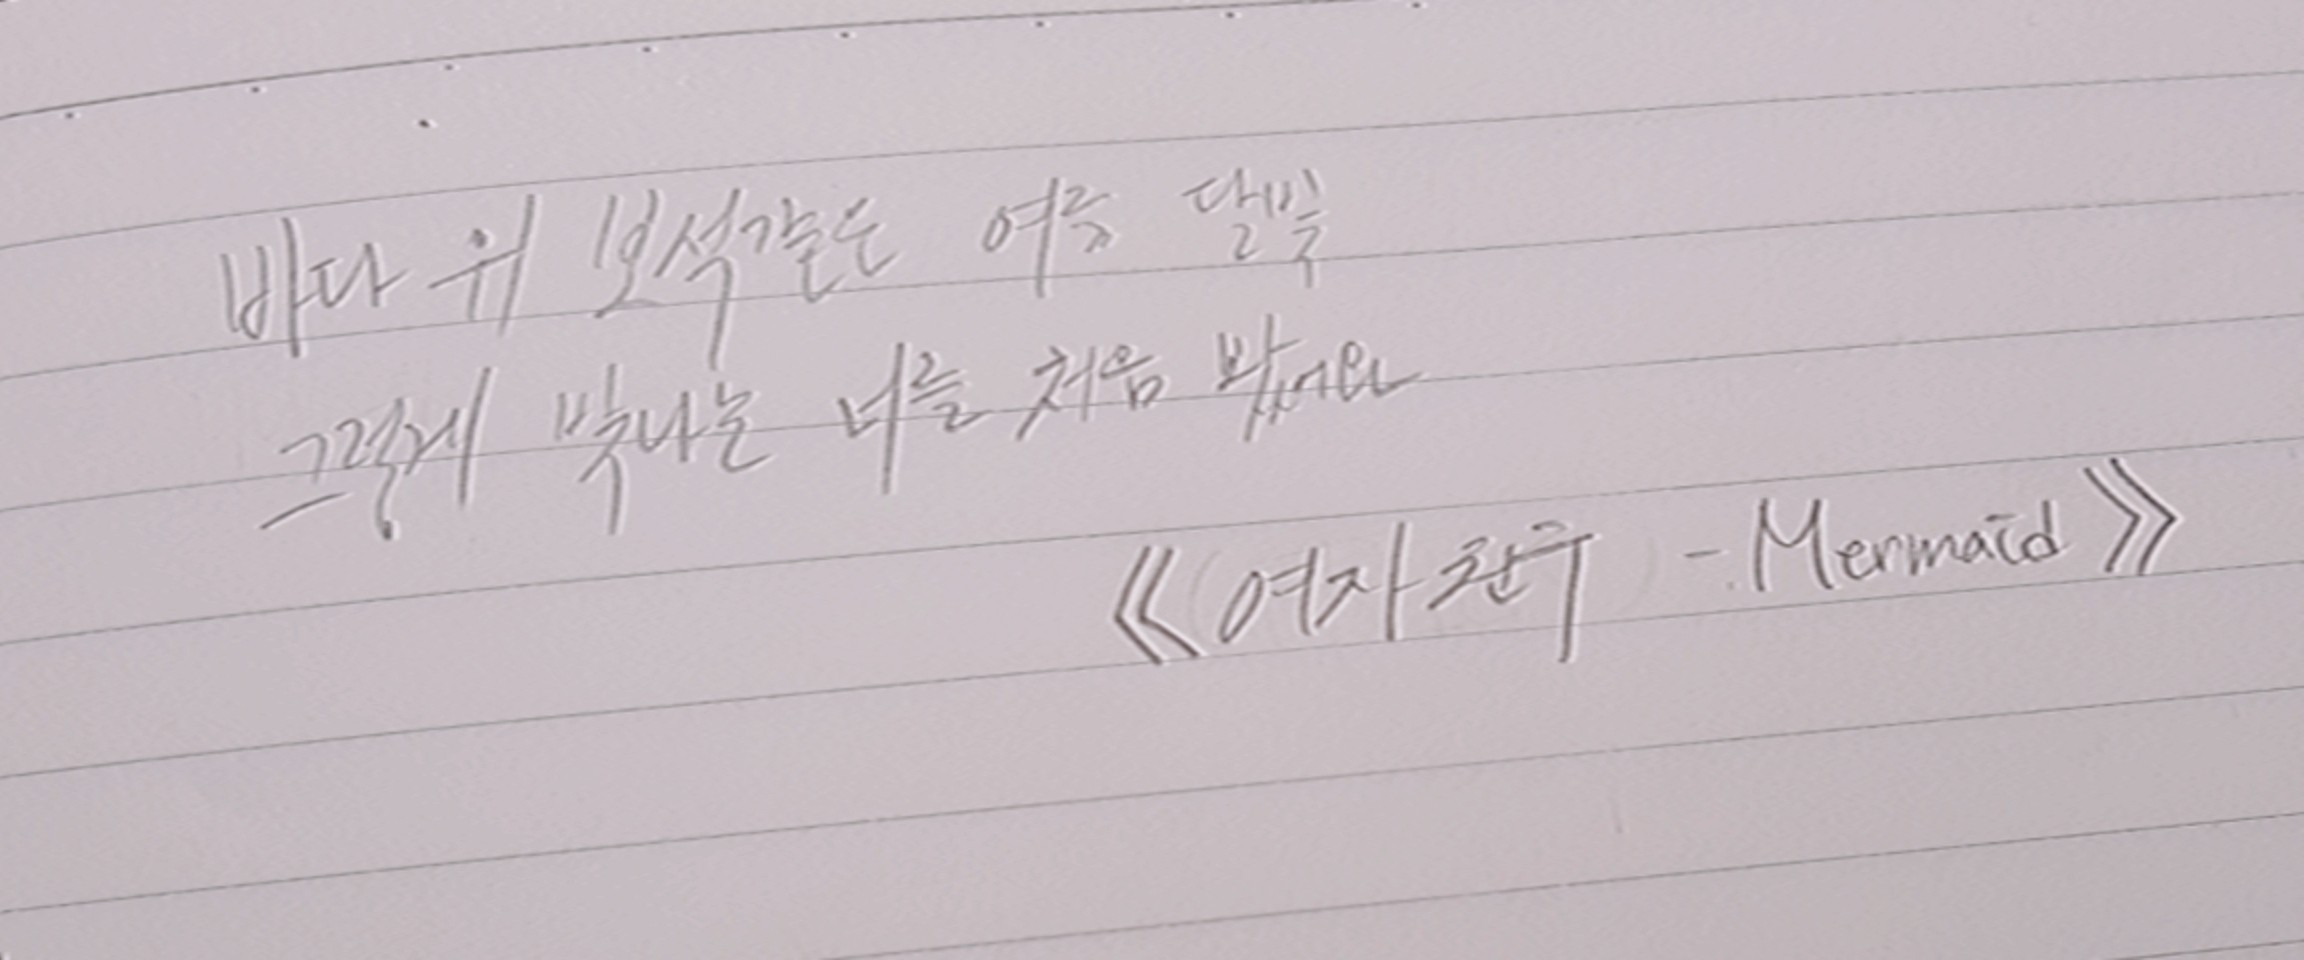 바다 위 보석같은 여름 달빛
그렇게 빛나는 너를 처음 봤어요
《여자친구 - Mermaid》